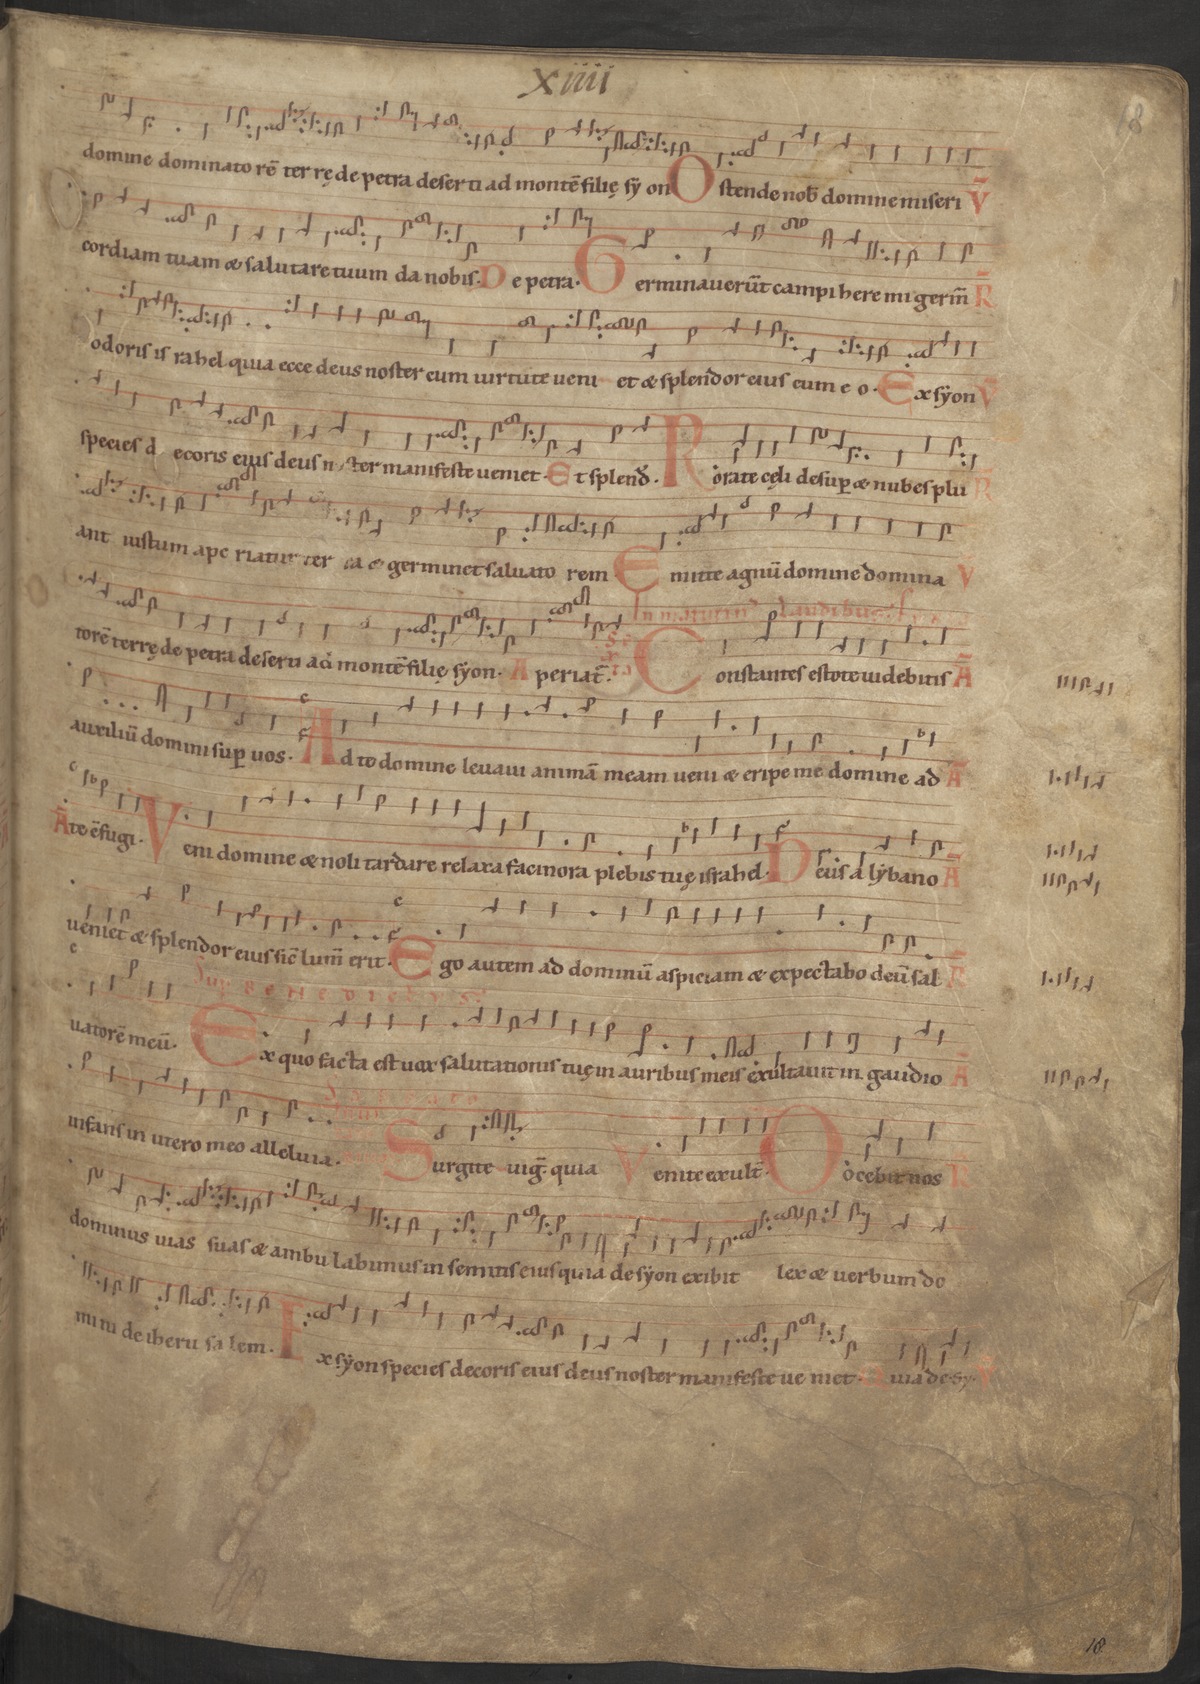 xiiii
18
domine dominato rē ter rę de petra deserti ad montē filię sẏ on Ostende nob domine miseri V̄
cordiam tuam & salutare tuum da nobis. De petra. Germinauerūt campi heremi germ̄ R̄
odoris israhel quia ecce deus noster cum uirtute ueni et & splendor eius cum e o. Ex sẏon V̄
species d ecoris eius deus noster manifeste ueniet. Et splend. Rorate cęli desup & nubes plu R̄
ant iustum ape riatur ter ra & germinet saluato rem Emitte agnū domine domina V
In matutin Laudibus
torē terrę de petra deserti ad montē filię sẏon. Aperiat̄. Constantes estote uidebitis Ā
auxiliū domini sup uos. Ad te domine leuaui animā meam ueni & eripe me domine ad Ā
Ā te c̄fugi. Veni domine & noli tardare relaxa facinora plebis tuę israhel. Deus a lẏbano Ā
ueniet & splendor eius sic̄ lum̄ erit. Ego autem ad dominū aspiciam & expectabo deū sal
Sup Benedictus
uatorē meū. Ex quo facta est uox salutationis tuę in auribus meis exultauit in gaudio Ā
infans in utero meo alleluia. Surgite uiḡ. quia Venite exult̄. Docebit nos R
dominus uias suas & ambu labimus in semitis eius quia de sẏon exibit lex & uerbum do
mini de iheru sa lem. Ex sẏon species decoris eius deus noster manifeste ue niet. Quia de sy. V̄
18